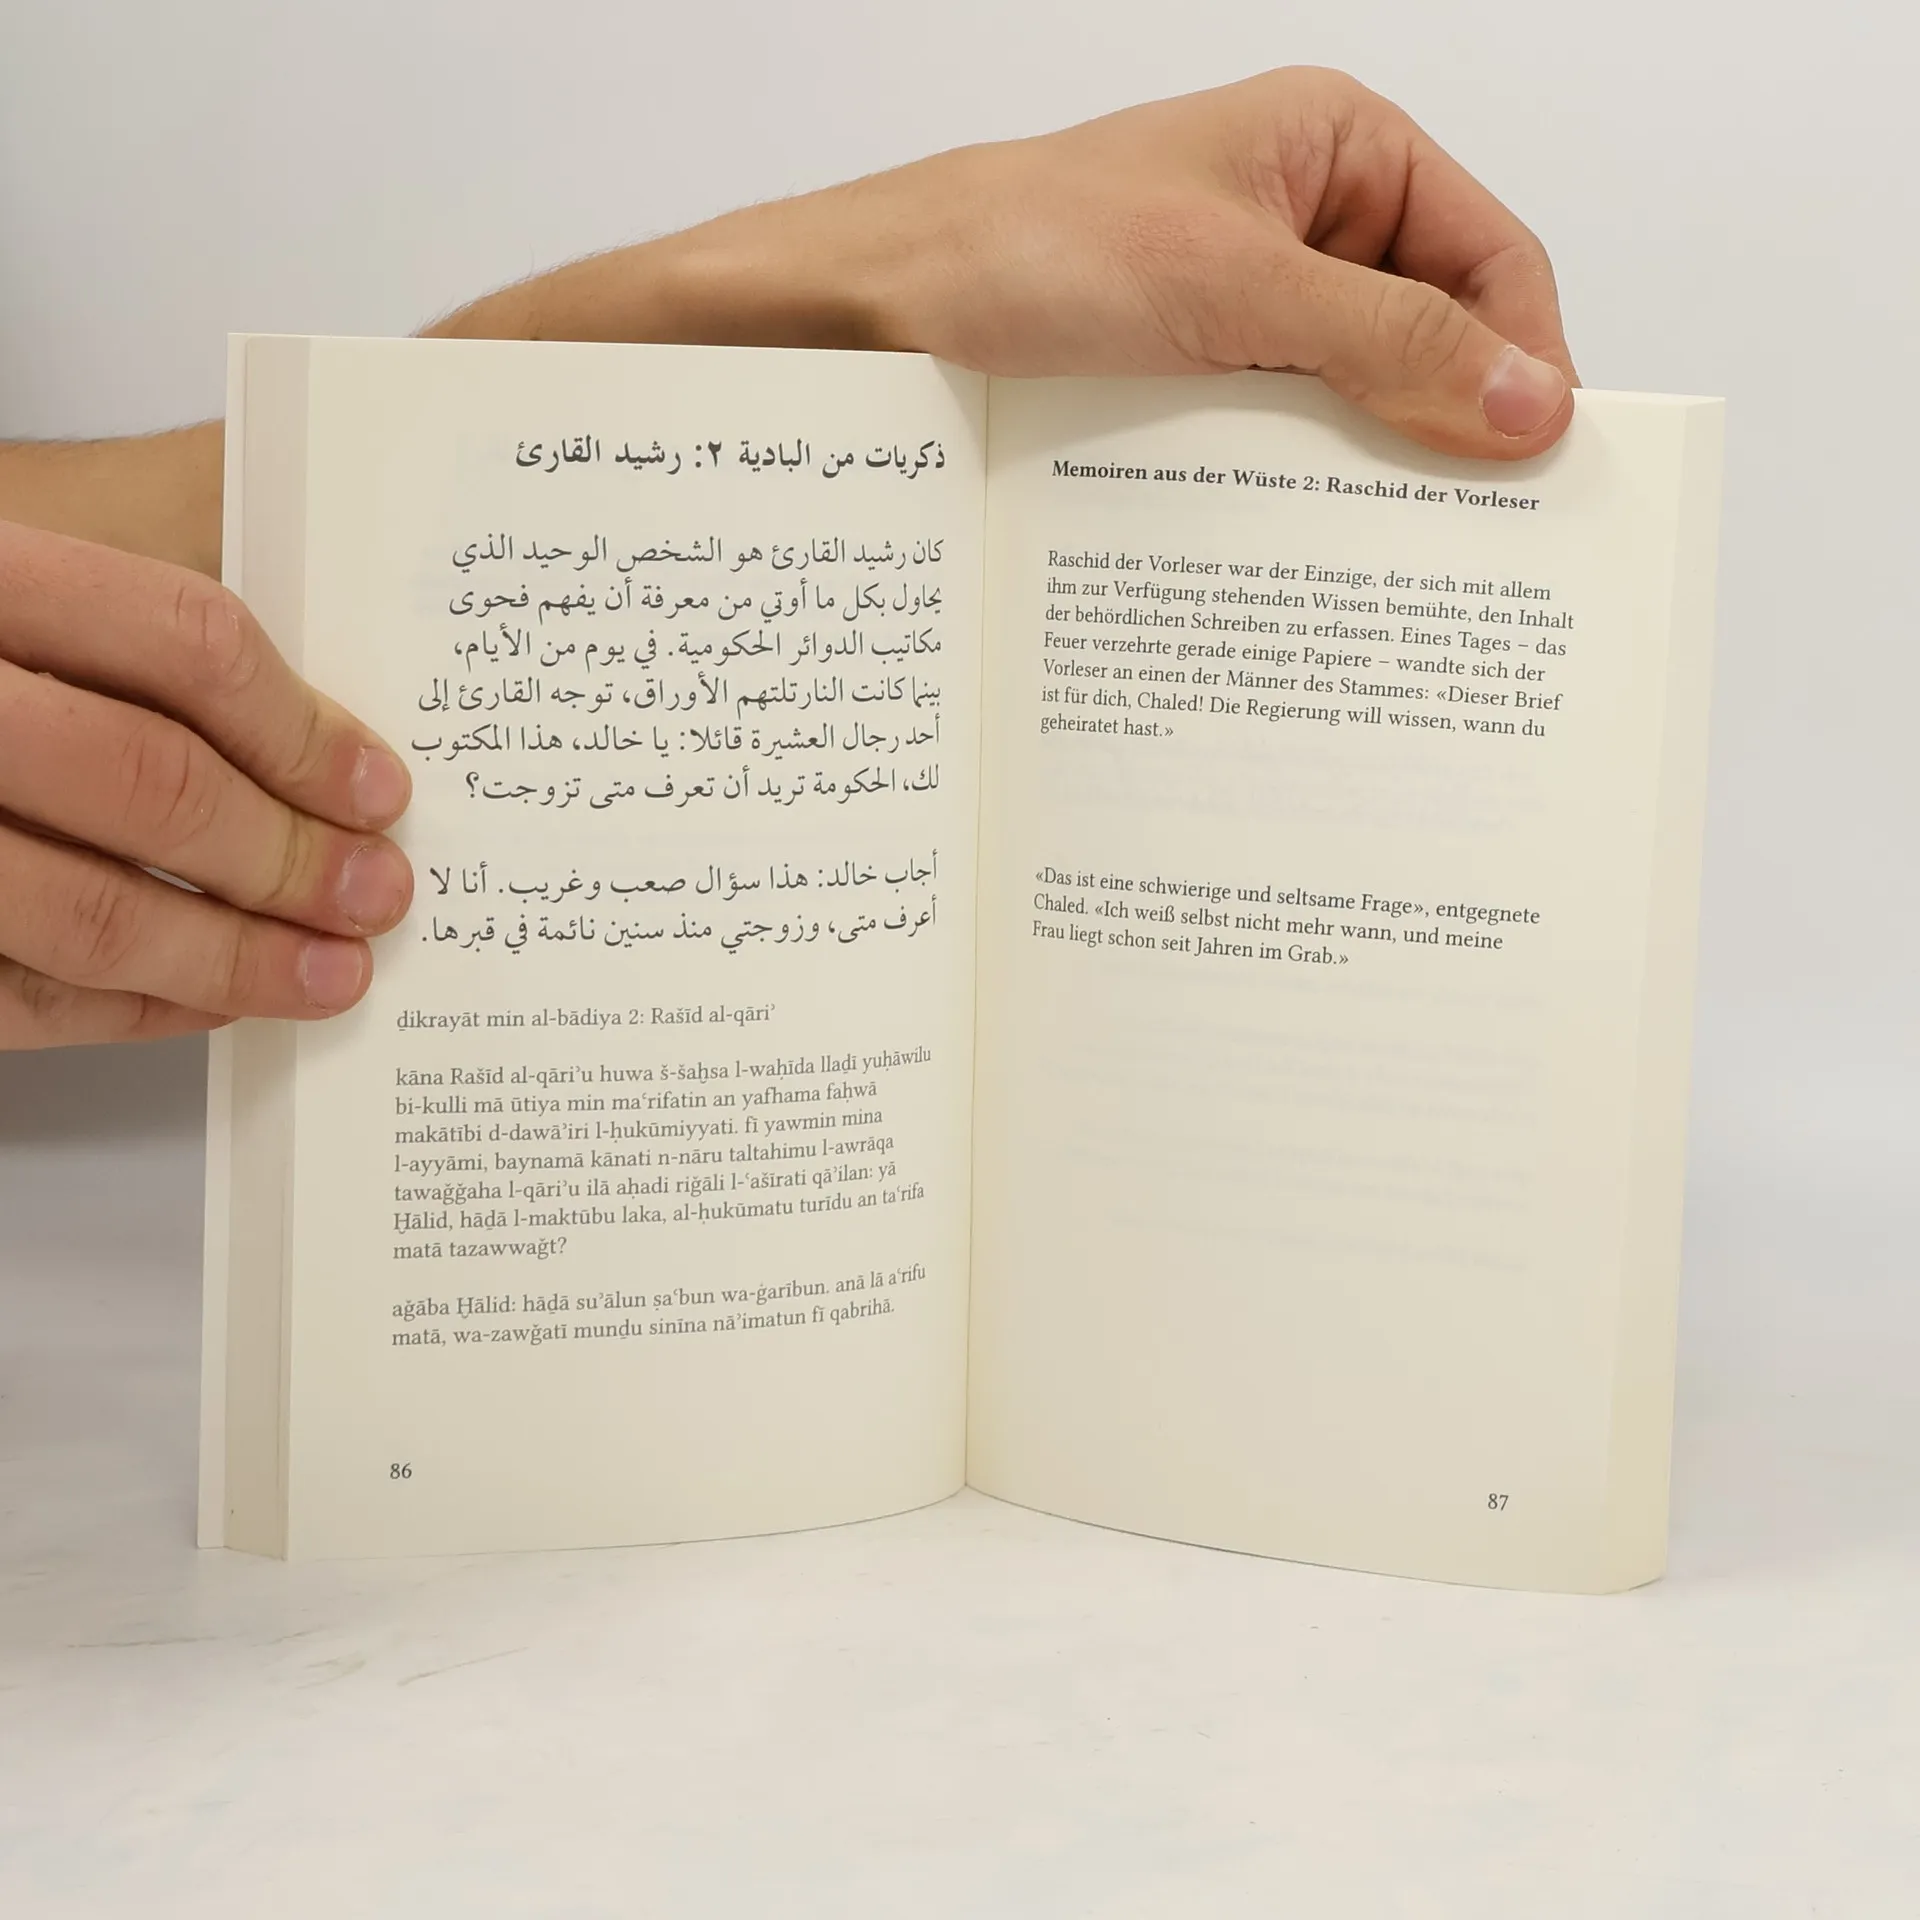 ذكريات من البادية ٢: رشيد القارئ
كان رشيد القارئ هو الشخص الوحيد الذي
يحاول بكل ما أوتي من معرفة أن يفهم فحوى
مكاتيب الدوائر الحكومية. في يوم من الأيام،
بينما كانت النار تلتهم الأوراق، توجه القارئ إلى
أحد رجال العشيرة قائلا: يا خالد، هذا المكتوب
لك، الحكومة تريد أن تعرف متى تزوجت؟
أجاب خالد: هذا سؤال صعب وغريب. أنا لا
أعرف متى، وزوجتي منذ سنين نائمة في قبرها.
ḏikrayāt min al-bādiya 2: Rašīd al-qāriʾ
kāna Rašīd al-qāriʾu huwa š-šaḫsa l-waḥīda llaḏī yuḥāwilu
bi-kulli mā ūtiya min maʿrifatin an yafhama faḥwā
makātībi d-dawāʾiri l-ḥukūmiyyati. fī yawmin mina
l-ayyāmi, baynamā kānati n-nāru taltahimu l-awrāqa
tawaǧǧaha l-qāriʾu ilā aḥadi riǧāli l-ʿašīrati qāʾilan: yā
Ḫālid, hāḏā l-maktūbu laka, al-ḥukūmatu turīdu an taʿrifa
matā tazawwaǧt?
aǧāba Ḫālid: hāḏā suʾālun ṣaʿbun wa-ġarībun. anā lā aʿrifu
matā, wa-zawǧatī munḏu sinīna nāʾimatun fī qabrihā.
86
Memoiren aus der Wüste 2: Raschid der Vorleser
Raschid der Vorleser war der Einzige, der sich mit allem
ihm zur Verfügung stehenden Wissen bemühte, den Inhalt
der behördlichen Schreiben zu erfassen. Eines Tages – das
Feuer verzehrte gerade einige Papiere – wandte sich der
Vorleser an einen der Männer des Stammes: «Dieser Brief
ist für dich, Chaled! Die Regierung will wissen, wann du
geheiratet hast.»
«Das ist eine schwierige und seltsame Frage», entgegnete
Chaled. «Ich weiß selbst nicht mehr wann, und meine
Frau liegt schon seit Jahren im Grab.»
87